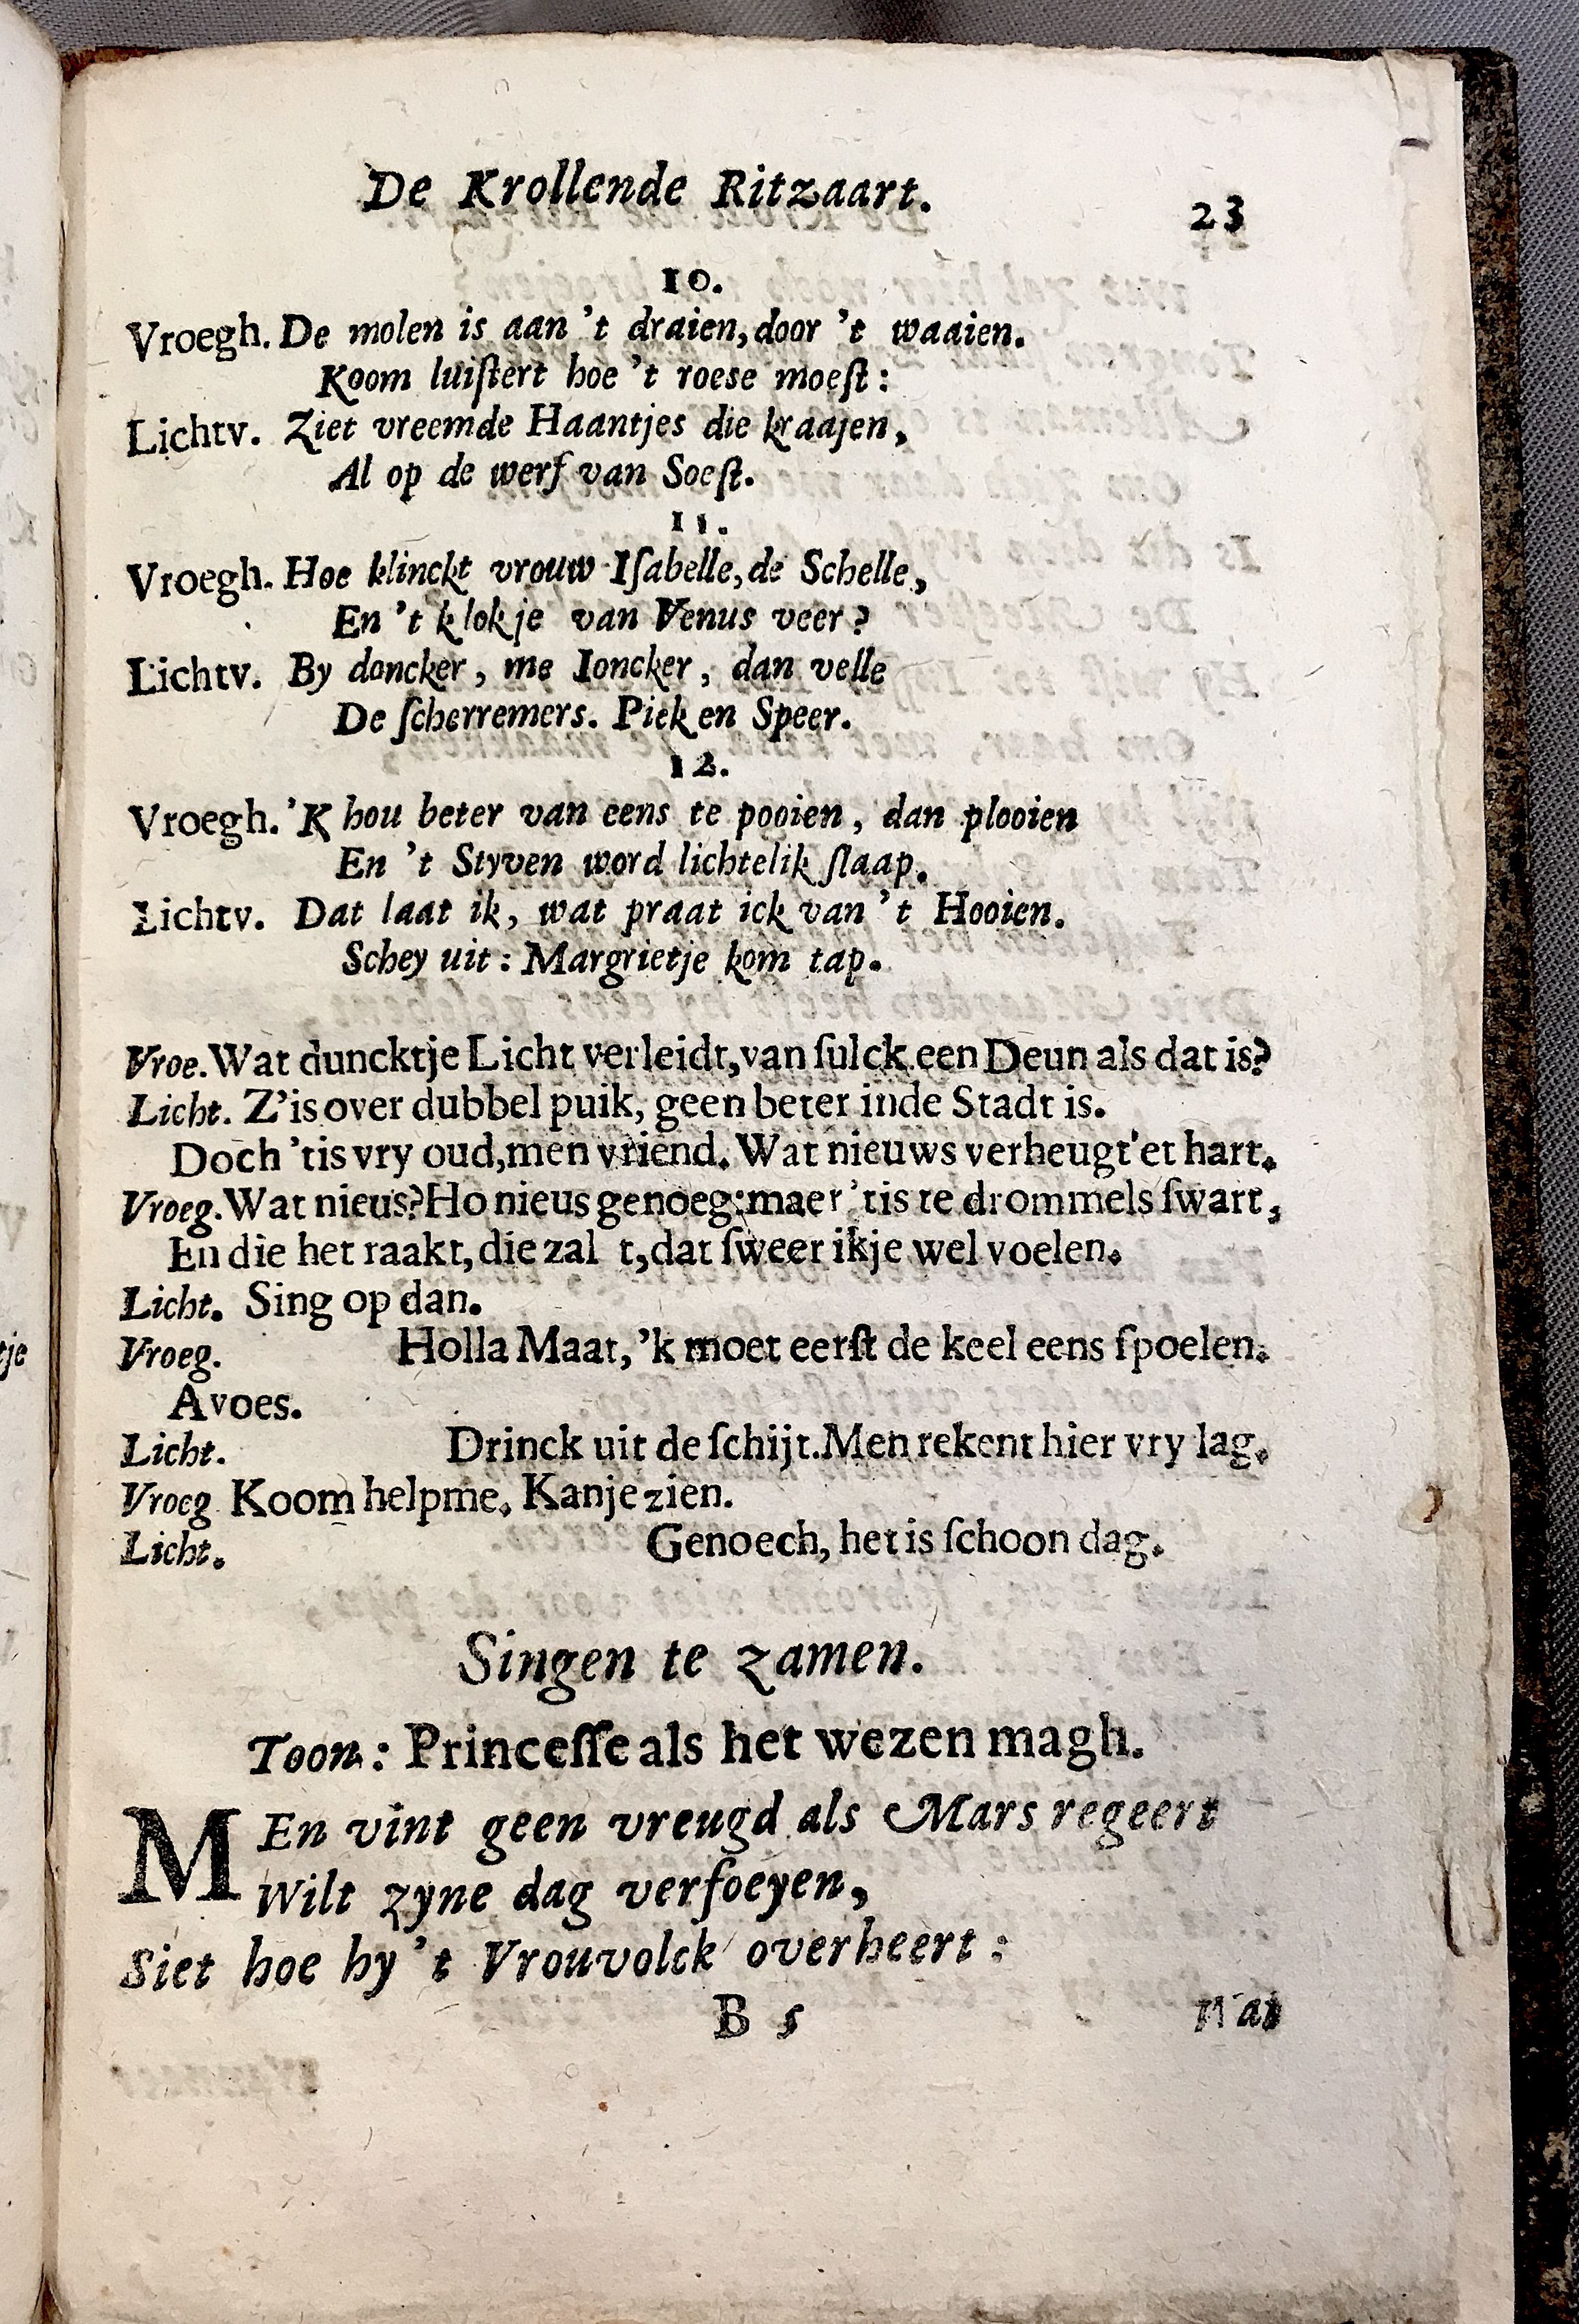 De Krollende Ritzaart. 23
10.
Vroegh. De molen is aan 't draien, door 't waaien.
Koom luiſtert hoe 't roese moeſt:
Lichtv. Ziet vreemde Haantjes die kraajen,
Al op de werf van Soeſt.
11.
Vroegh. Hoe klinckt vrouw Iſabelle, de Schelle,
En 't klokje van Venus veer?
Lichtv. By doncker, me Ioncker, dan velle
De ſcherremers. Piek en Speer.
12.
Vroegh. 'K hou beter van eens te pooien, dan plooien
En 't Styven word lichtelik ſlaap.
Lichtv. Dat laat ik, wat praat ick van 't Hooien.
Schey uit: Margrietje kom tap.
Vroe. Wat duncktje Licht verleidt, van ſulck een Deun als dat is?
Licht. Z'is over dubbel puik, geen beter inde Stadt is.
Doch 'tis vry oud, men vriend. Wat nieuws verheugt'et hart.
Vroeg. Wat nieus? Ho nieus genoeg: maer 'tis te drommels ſwart,
En die het raakt, die zal t, dat ſweer ikje wel voelen.
Licht. Sing op dan.
Vroeg. Holla Maat, 'k moet eerſt de keel eens ſpoelen.
Avoes.
Licht. Drinck uit de ſchijt. Men rekent hier vry lag.
Vroeg Koom helpme. Kanje zien.
Licht. Genoech, het is ſchoon dag.
Singen te zamen.
Toon: Princeſſe als het wezen magh.
MEn vint geen vreugd als Mars regeert
Wilt zyne dag verfoeyen,
Siet hoe hy 't Vrouvolck overheert:
B 5 Wat
tje